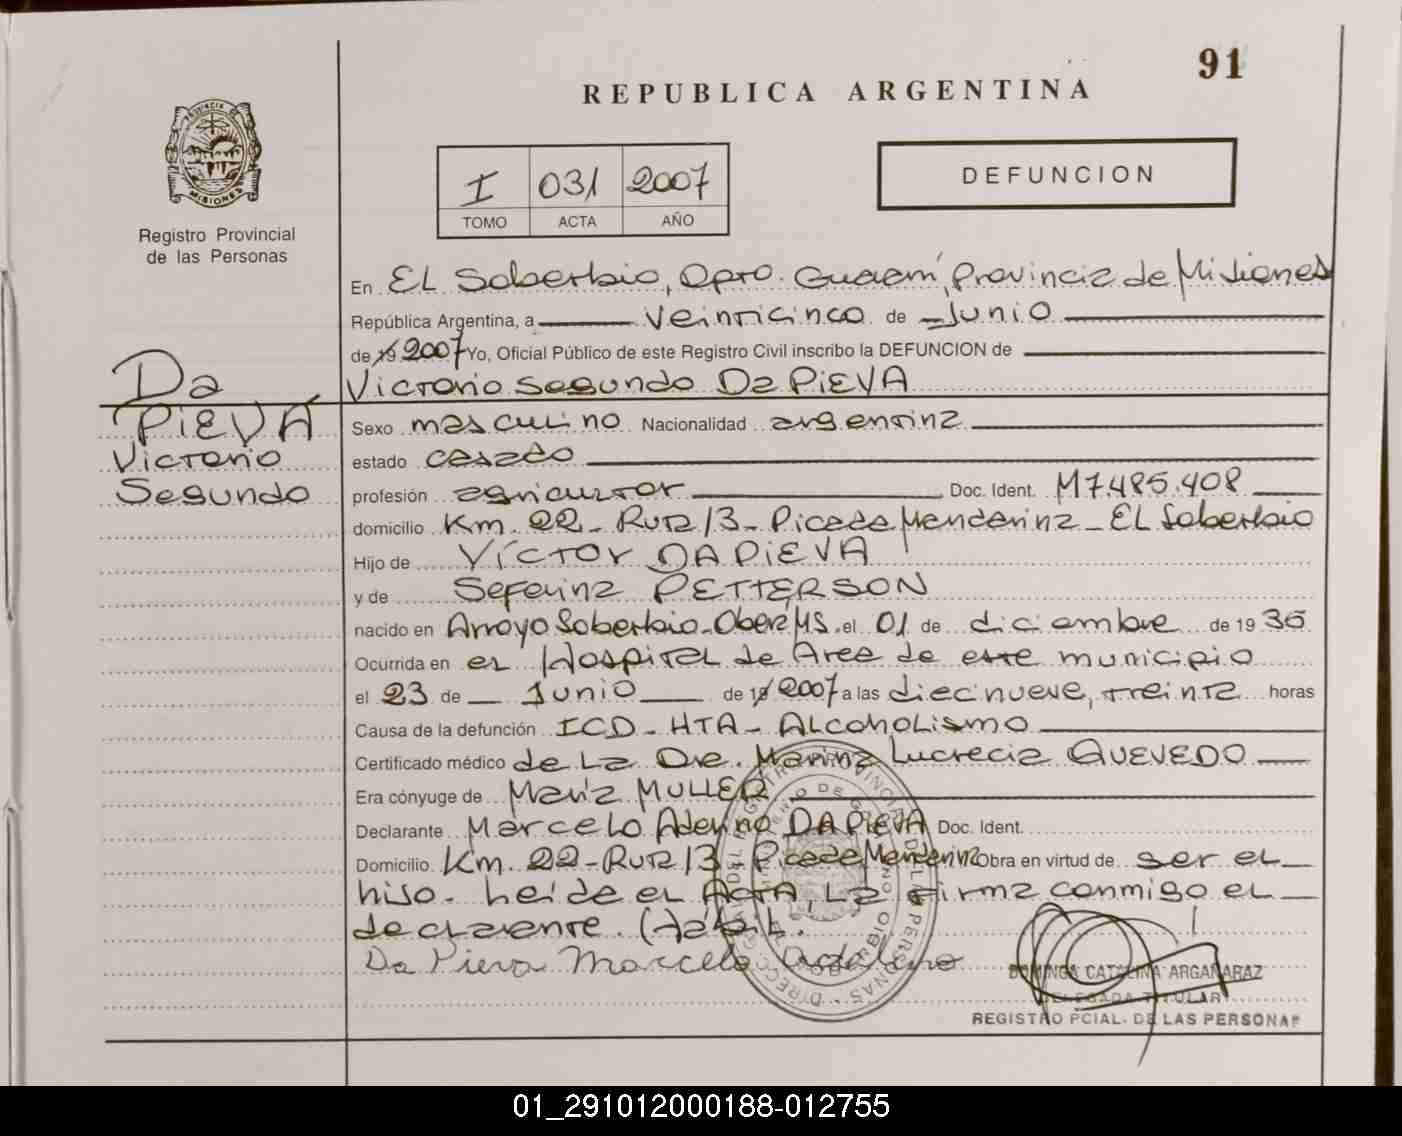 91
REPUBLICA ARGENTINA
PROVINCIA DE MISIONES
Registro Provincial
de las Personas
I 031 2007
TOMO ACTA AÑO
DEFUNCION
En EL Soberbio, Dpto. Guaraní, Provincia de Misiones
República Argentina, a Veinticinco de Junio
de 19 2007 Yo, Oficial Público de este Registro Civil inscribo la DEFUNCION de
Victorio Segundo Da PiEVA
Da
PIEVA
Victorio
Segundo
Sexo masculino Nacionalidad argentina
estado casado
profesión agricultor Doc. Ident. M7.485.408
domicilio Km. 22 - Ruta 13 - Picada Mandarina - EL Soberbio
Hijo de VÍCTOR DA PIEVA
y de Seferina PETTERSON
nacido en Arroyo Soberbio - Oberá MS. el 01 de diciembre de 19 36
Ocurrida en el Hospital de Area de este municipio
el 23 de Junio de 19 2007 a las diecinueve, treinta horas
Causa de la defunción ICD - HTA - ALcohoLismo
Certificado médico de La Dra. Marina Lucrecia QUEVEDO
Era cónyuge de María MULLER
Declarante Marcelo Adelino DA PIEVA Doc. Ident.
Domicilio Km. 22 - Ruta 13 Picada Mandarina Obra en virtud de ser el
hijo. Leída el ActA, La firma conmigo el
declarante.
Da Pieva Marcelo Adelino
DOMINGA CATALINA ARGAÑARAZ
DELEGADA TITULAR
REGISTRO PCIAL. DE LAS PERSONAS
01_291012000188-012755